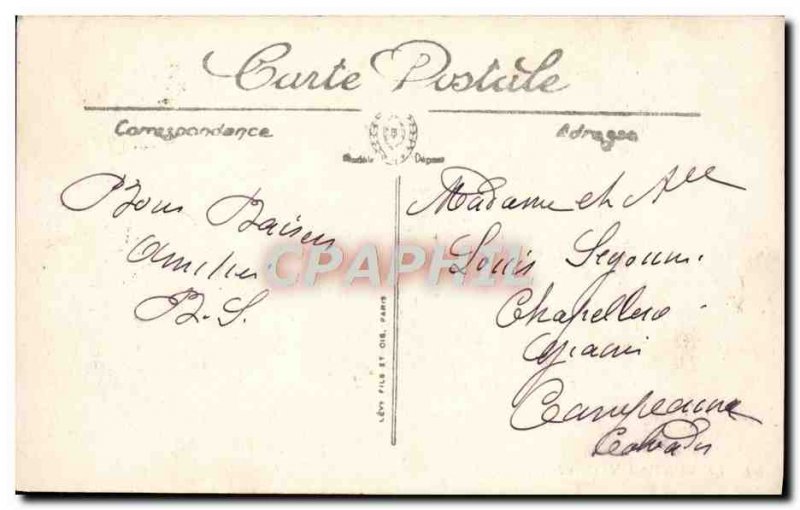 Carte Postale
Correspondance
Adresse
B
Modèle Déposé
Bons Baisers
Amitiés
B. S.
Madame et Mlle
Louis
Campeaux
Calvados
LÉVY FILS ET CIE, PARIS
CPAPHIL